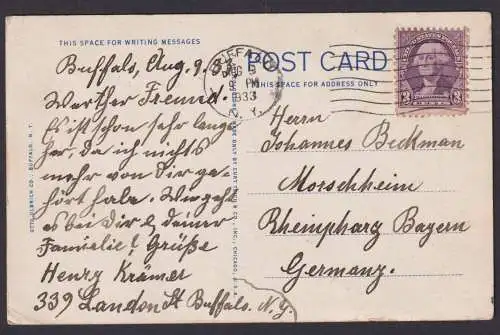 THIS SPACE FOR WRITING MESSAGES
Buffalo, Aug. 9. 33
Werther Freund.
Es ist schon sehr lange
her, da ich nichts
mehr von dir ge-
hört habe. Wie geht
es bei Dir & deiner
Familie! Grüße
Henry Krämer
339 Landon St Buffalo. N.Y.
OTTO ULBRICH CO., BUFFALO, N. Y.
BUFFALO
AUG 9
PM
1933
N. Y.
POST CARD
THIS SPACE FOR ADDRESS ONLY
3
3
Herrn
Johannes Beckman
Morschheim
Rheinpharz Bayern
Germany.